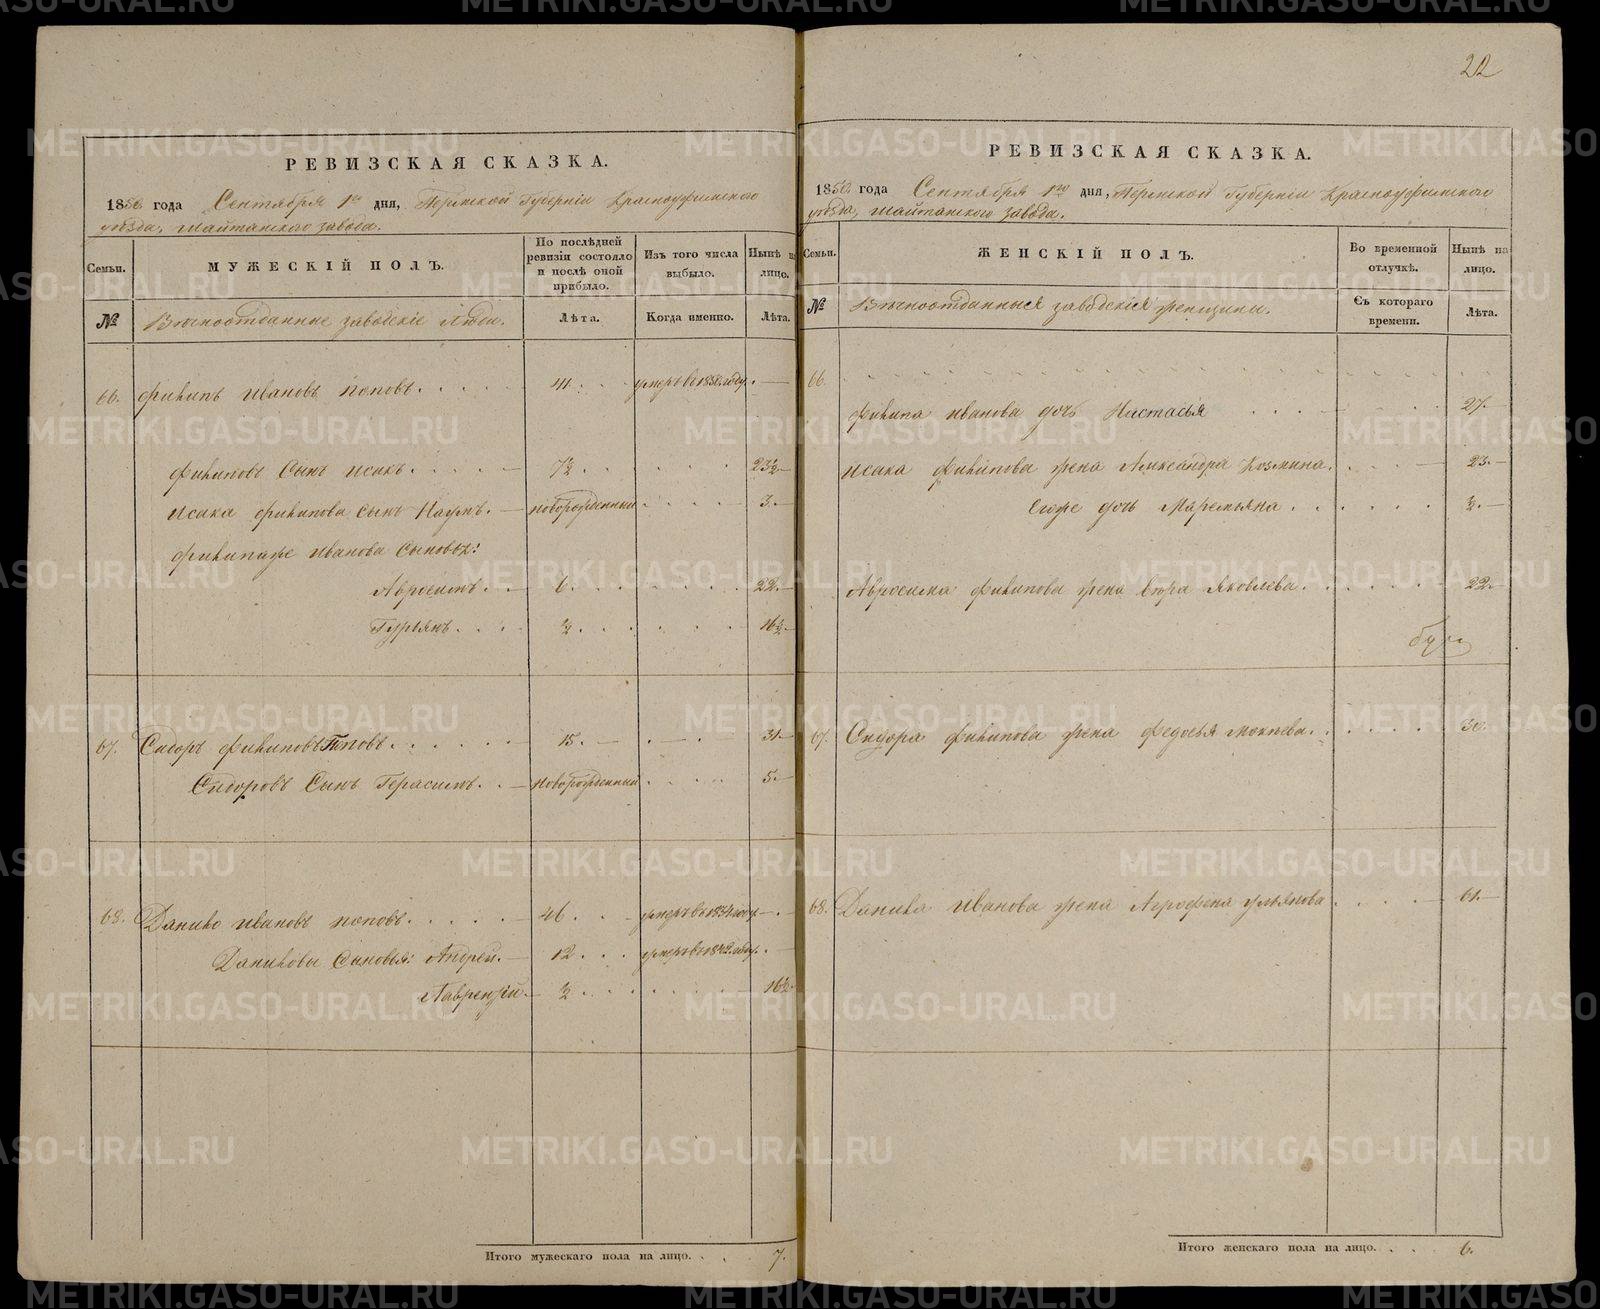 22
РЕВИЗСКАЯ СКАЗКА.
1850 года Сентября 1го дня, Пермской Губерніи Красноуфимского
уѣзда, Шайтанского завода.
Семьи.
МУЖЕСКІЙ ПОЛЪ.
По послѣдней ревизіи состояло и послѣ оной прибыло.
Изъ того числа выбыло.
Нынѣ на лицо.
№
Вечноотданные заводскіе Люди.
Лѣта.
Когда именно.
Лѣта.
66. Филипъ Ивановъ Поповъ. 41. умеръ въ 1838 году. —
Филиповъ Сынъ Исакъ. 7½ 23½
Исака Филипова Сынъ Наумъ. новорожденный 3.
Филипаже Иванова Сыновья:
Авросимъ. 6. 22.
Гурьянъ. ½ 16½
67. Сидоръ Филиповъ Поповъ. 15. 31
Сидоровъ Сынъ Герасимъ. новорожденный 5.
68. Данило Ивановъ Поповъ. 46 умеръ въ 1834 году —
Даниловы Сыновья: Андрей. 12 умеръ въ 1842 году.
Лаврентій. ½ 16½
Итого мужескаго пола на лицо. 7.
РЕВИЗСКАЯ СКАЗКА.
1850 года Сентября 1го дня, Пермской Губерніи Красноуфимского
уѣзда, Шайтанского завода.
Семьи.
ЖЕНСКІЙ ПОЛЪ.
Во временной отлучкѣ.
Нынѣ на лицо.
№
Вечноотданныя заводскія женщины.
Съ котораго времени.
Лѣта.
66.
Филипа Иванова дочь Настасья 27.
Исака Филипова жена Александра Козмина. 23.
Егоже дочь Маремьяна. ½
Авросима Филипова жена Вера Яковлева. 22
67. Сидора Филипова жена Федосья Мокиева. 30.
68. Данила Иванова жена Агрофена Ульянова 61.
Итого женскаго пола на лицо. 6.
METRIKI.GASO-URAL.RU